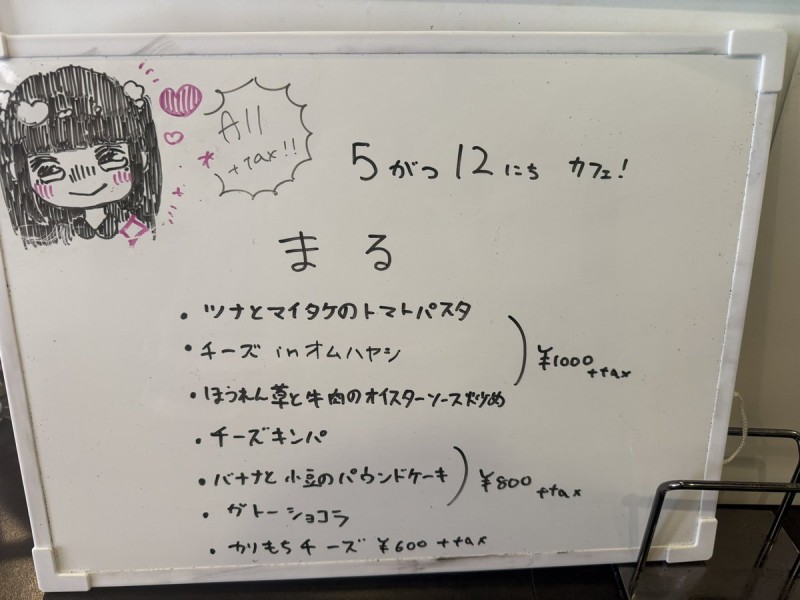 All
+tax!!
5がつ12にち カフェ!
まる
・ツナとマイタケのトマトパスタ
・チーズinオムハヤシ
¥1000
+tax
・ほうれん草と牛肉のオイスターソース炒め
・チーズキンパ
・バナナと小豆のパウンドケーキ
¥800
+tax
・ガトーショコラ
・かりもちチーズ ¥600 +tax